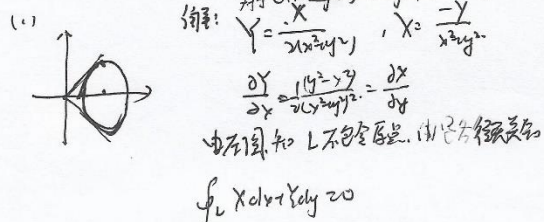 (1)
解: Y = x / 2(x²+y²) , X = -y / x²+y²
∂Y/∂x = 1(y²-x²) / 2(x²+y²)² = ∂X/∂y
由左图知 L不包含原点,
∮L Xdx+Ydy=0